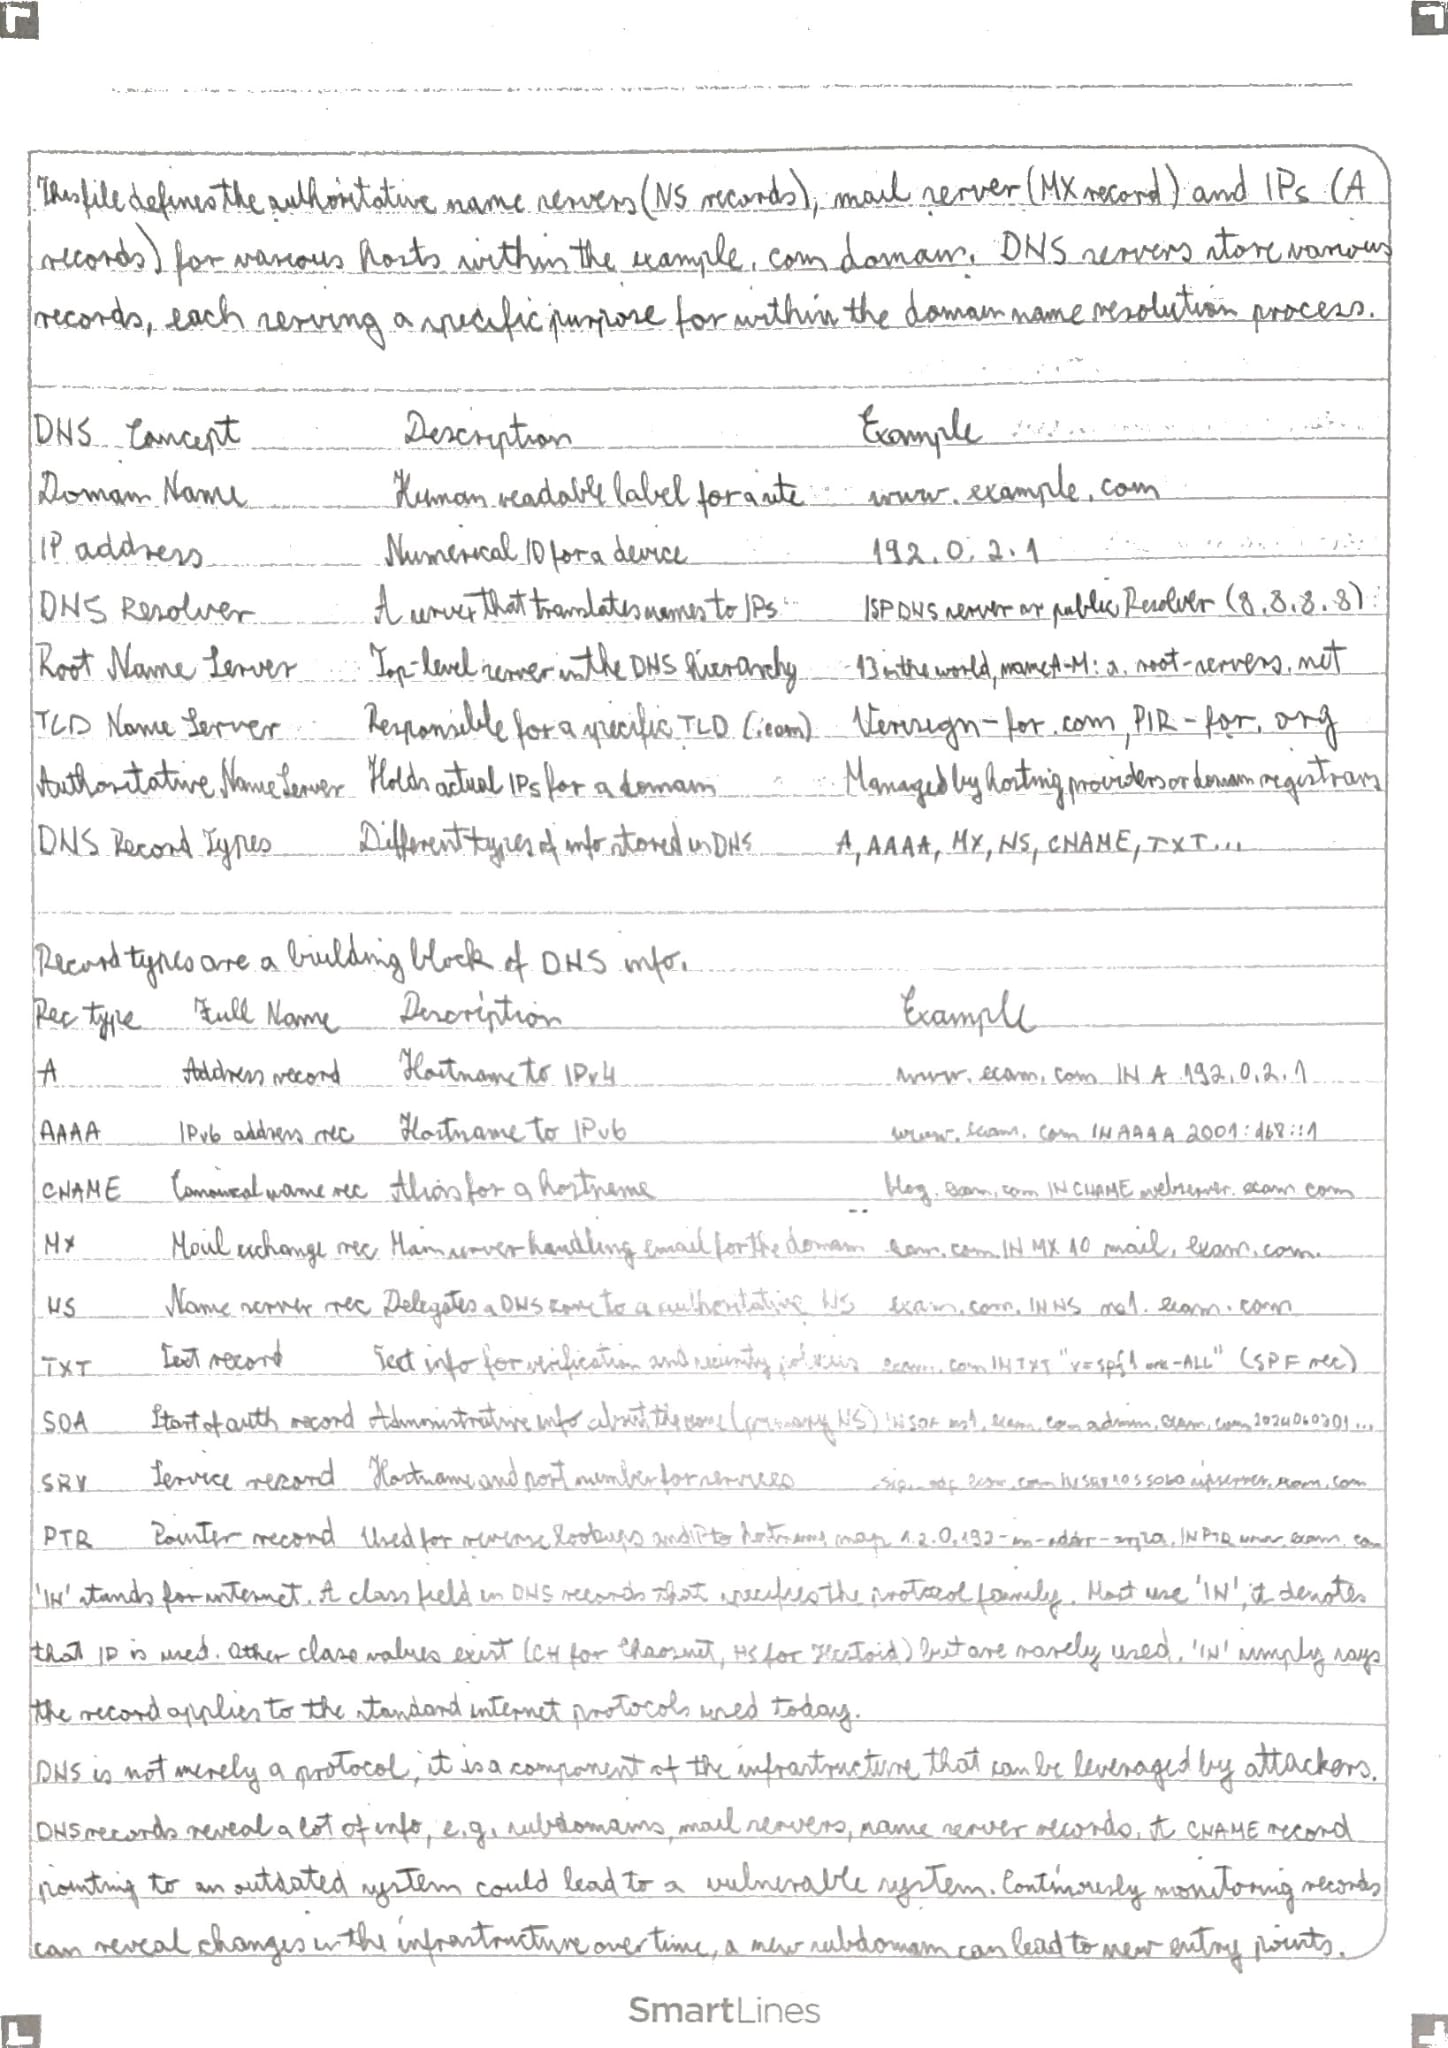 This file defines the authoritative name servers (NS records), mail server (MX record) and IPs (A
records) for various hosts within the example. com domain. DNS servers store various
records, each serving a specific purpose for within the domain name resolution process.
DNS Concept Description Example
Domain Name Human readable label for a site www. example. com
IP address Numerical ID for a device 192.0.2.1
DNS Resolver A server that translates names to IPs ISP DNS server or public Resolver (8.8.8.8)
Root Name Server Top-level server in the DNS hierarchy 13 in the world, name A-M: a. root-servers. net
TLD Name Server Responsible for a specific TLD (.com) Verisign - for .com, PIR - for .org
Authoritative Name Server Holds actual IPs for a domain Managed by hosting providers or domain registrars
DNS Record Types Different types of info stored in DNS A, AAAA, MX, NS, CNAME, TXT...
Record types are a building block of DNS info.
Rec type Full Name Description Example
A Address record Hostname to IPv4 www. exam. com IN A 192.0.2.1
AAAA IPv6 address rec Hostname to IPv6 www. exam. com IN AAAA 2001:db8::1
CNAME Canonical name rec Alias for a hostname blog. exam. com IN CNAME webserver. exam com
MX Mail exchange rec Main server handling email for the domain exam. com. IN MX 10 mail. exam. com.
NS Name server rec Delegates a DNS zone to a authoritative NS exam. com. IN NS ns1. exam. com
TXT Text record Text info for verification and security policies exam. com IN TXT "v=spf1 -ALL" (SPF rec)
SOA Start of auth record Administrative info about the zone (primary NS) IN SOA ns1. exam. com admin. exam. com 2024060301 ...
SRV Service record Hostname and port number for services sipserver. exam. com
PTR Pointer record Used for reverse lookups and IP to hostname map 1.2.0.192-in-addr-arpa. IN PTR www. exam. com
'IN' stands for internet. A class field in DNS records that specifies the protocol family. Most use 'IN', it denotes
that IP is used. Other class values exist (CH for Chaosnet, HS for Hesiod) but are rarely used. 'IN' simply says
the record applies to the standard internet protocols used today.
DNS is not merely a protocol, it is a component of the infrastructure that can be leveraged by attackers.
DNS records reveal a lot of info, e.g. subdomains, mail servers, name server records. A CNAME record
pointing to an outdated system could lead to a vulnerable system. Continuously monitoring records
can reveal changes in the infrastructure over time, a new subdomain can lead to new entry points.
SmartLines